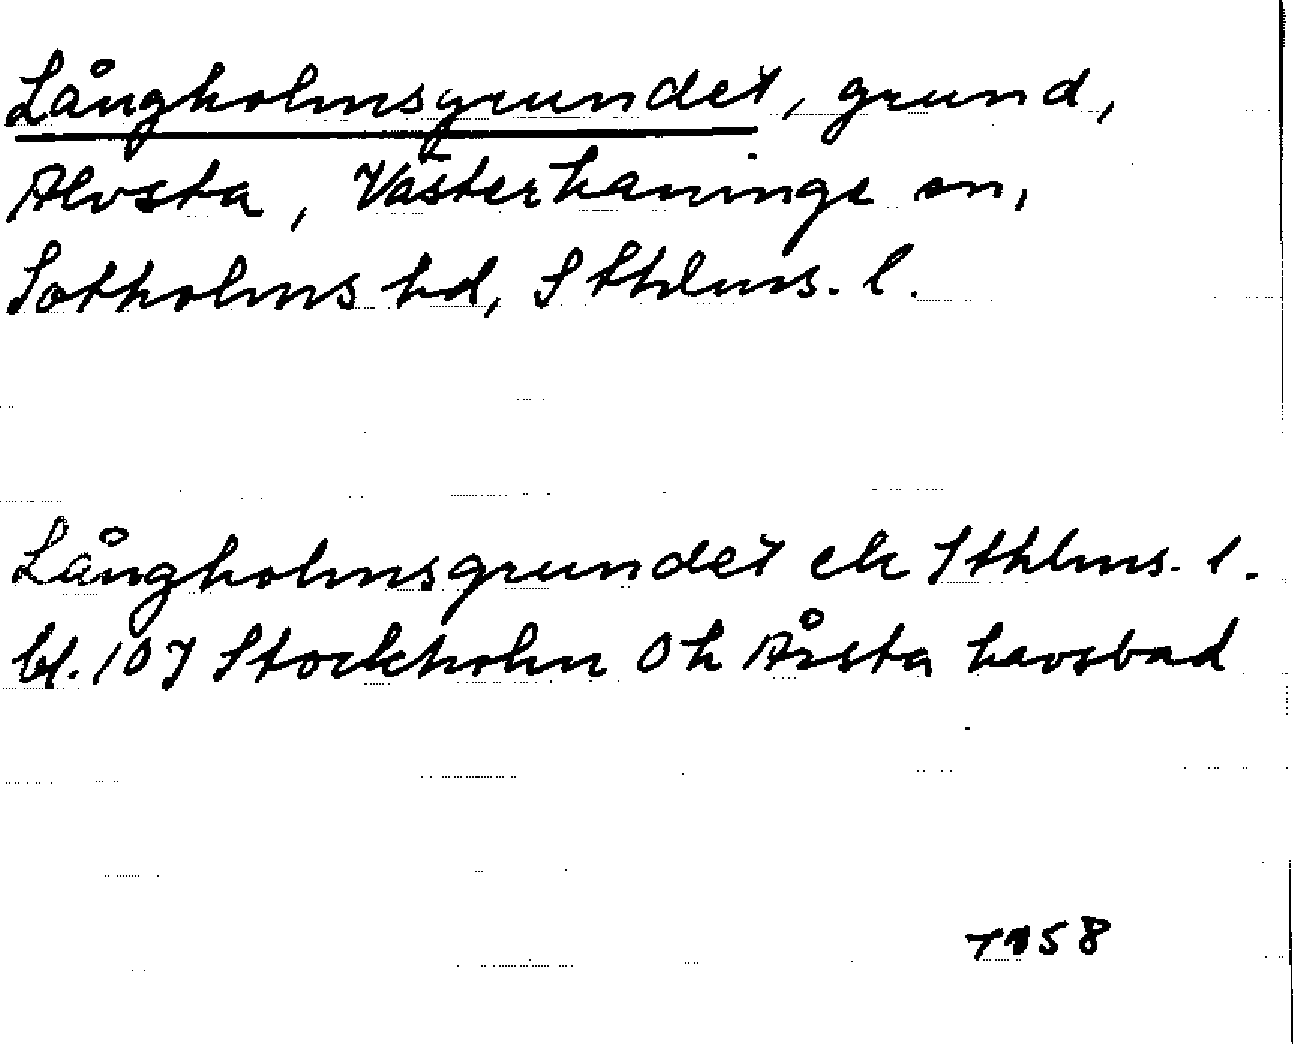 Långholmsgrundet, grund,
Alvsta, Västerhaninge sn,
Sotholms hd, Sthlms. l.
Långholmsgrundet ek Sthlms. l.
bl. 107 Stockholm Oh Årsta havsbad